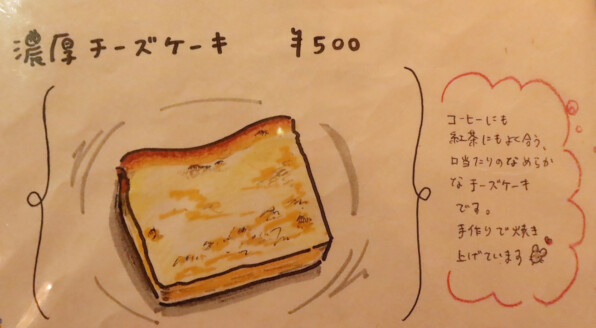 濃厚チーズケーキ ¥500
コーヒーにも
紅茶にもよく合う、
口当たりのなめらか
なチーズケーキ
です。
手作りで焼き
上げています